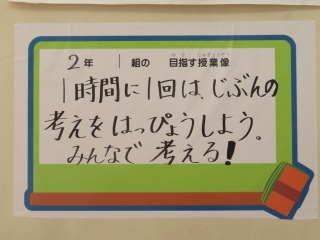 2年 1組の 目指す授業像
1時間に1回は、じぶんの
考えをはっぴょうしよう。
みんなで 考える!